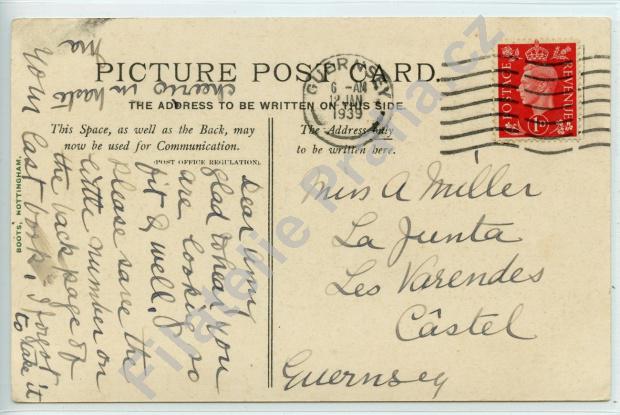 PICTURE POST CARD.
THE ADDRESS TO BE WRITTEN ON THIS SIDE
This Space, as well as the Back, may
now be used for Communication.
(POST OFFICE REGULATION).
The Address only
to be written here.
BOOTS, NOTTINGHAM.
GUERNSEY
6 - AM
JAN
1939
POSTAGE
REVENUE
1D
Miss A Miller
La Junta
Les Varendes
Câstel
Guernsey
Dear
glad to hear you
are looking so
fit & well.
Please save the
little number on
the back page of
your last book. I forgot
to take it
cheerio in haste
ma
Filatelie Praha.cz